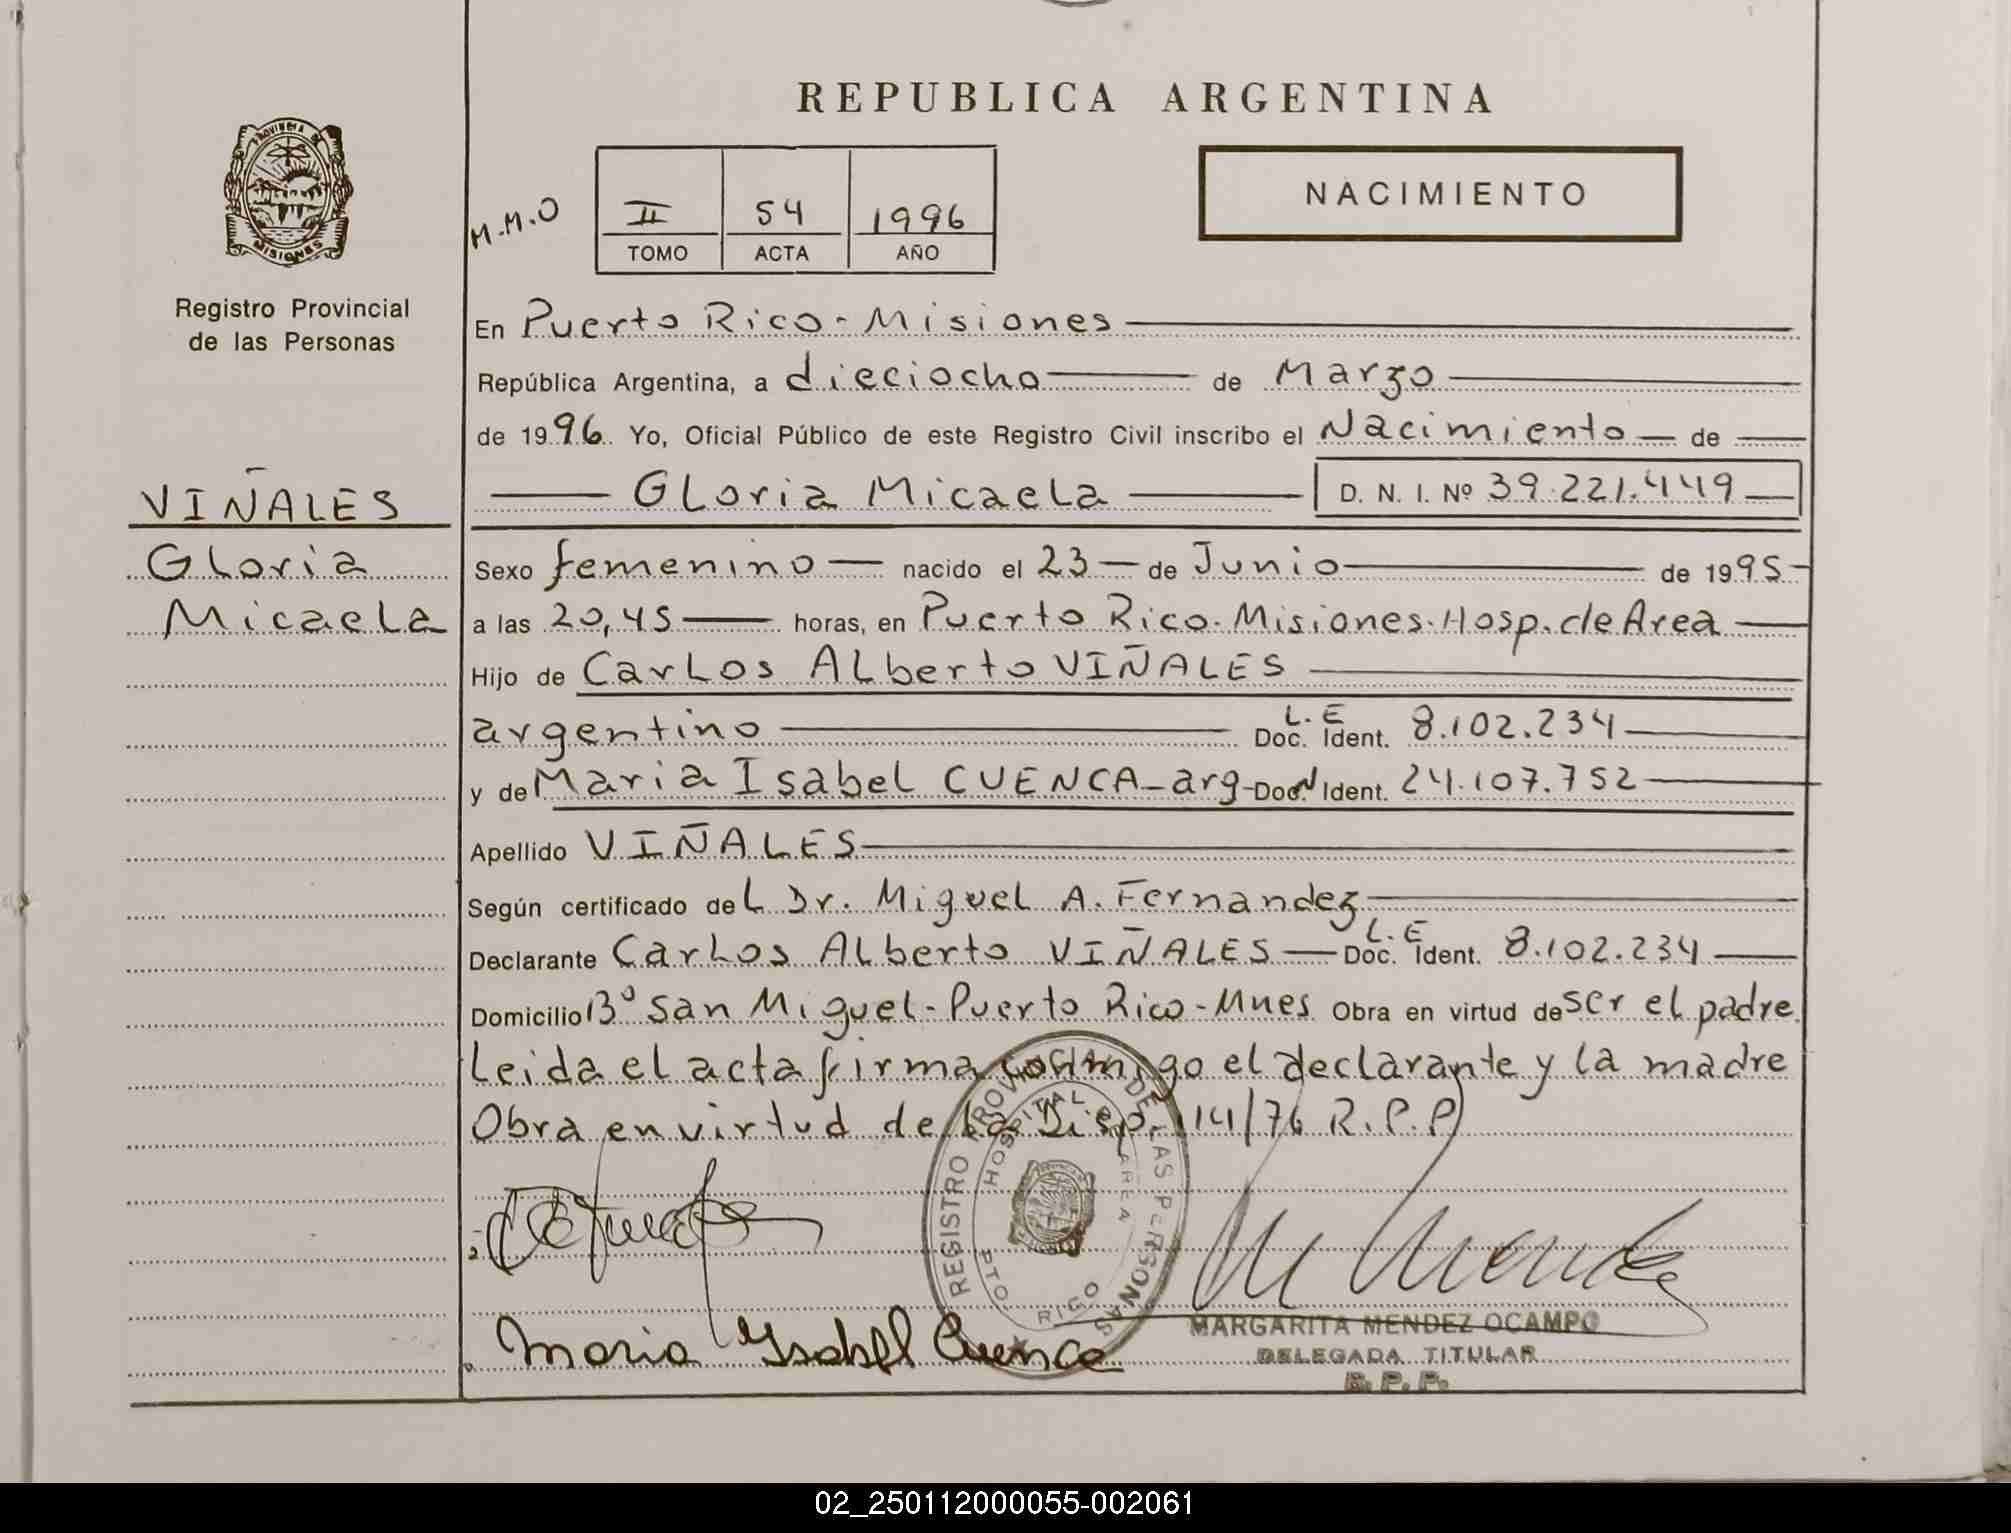 REPUBLICA ARGENTINA
PROVINCIA DE
MISIONES
Registro Provincial
de las Personas
M.M.O
II 54 1996
TOMO ACTA AÑO
NACIMIENTO
En Puerto Rico - Misiones
República Argentina, a dieciocho de Marzo
de 1996. Yo, Oficial Público de este Registro Civil inscribo el Nacimiento de
Gloria Micaela D. N. I. Nº 39.221.449
VIÑALES
Gloria
Micaela
Sexo femenino nacido el 23 de Junio de 1995
a las 20,45 horas, en Puerto Rico. Misiones. Hosp. de Area
Hijo de Carlos Alberto VIÑALES
argentino L.E Doc. Ident. 8.102.234
y de Maria Isabel CUENCA - arg - Doc. Ident. 24.107.752
Apellido VIÑALES
Según certificado del Dr. Miguel A. Fernandez
Declarante Carlos Alberto VIÑALES L.E Doc. Ident. 8.102.234
Domicilio Bº San Miguel - Puerto Rico - Mnes Obra en virtud de ser el padre.
Leida el acta firma conmigo el declarante y la madre
Obra en virtud de la Disp. 114/76 R.P.P
REGISTRO PROVINCIAL DE LAS PERSONAS
HOSPITAL AREA
PTO. RICO
Maria Isabel Cuenca
MARGARITA MENDEZ OCAMPO
DELEGADA TITULAR
R. P. P.
02_250112000055-002061